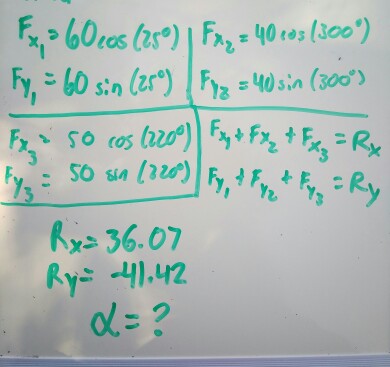 Fx₁ = 60 cos (25°)
Fy₁ = 60 sin (25°)
Fx₂ = 40 cos (300°)
Fy₂ = 40 sin (300°)
Fx₃ = 50 cos (220°)
Fy₃ = 50 sin (220°)
Fx₁ + Fx₂ + Fx₃ = Rx
Fy₁ + Fy₂ + Fy₃ = Ry
Rx = 36.07
Ry = -41.42
α = ?